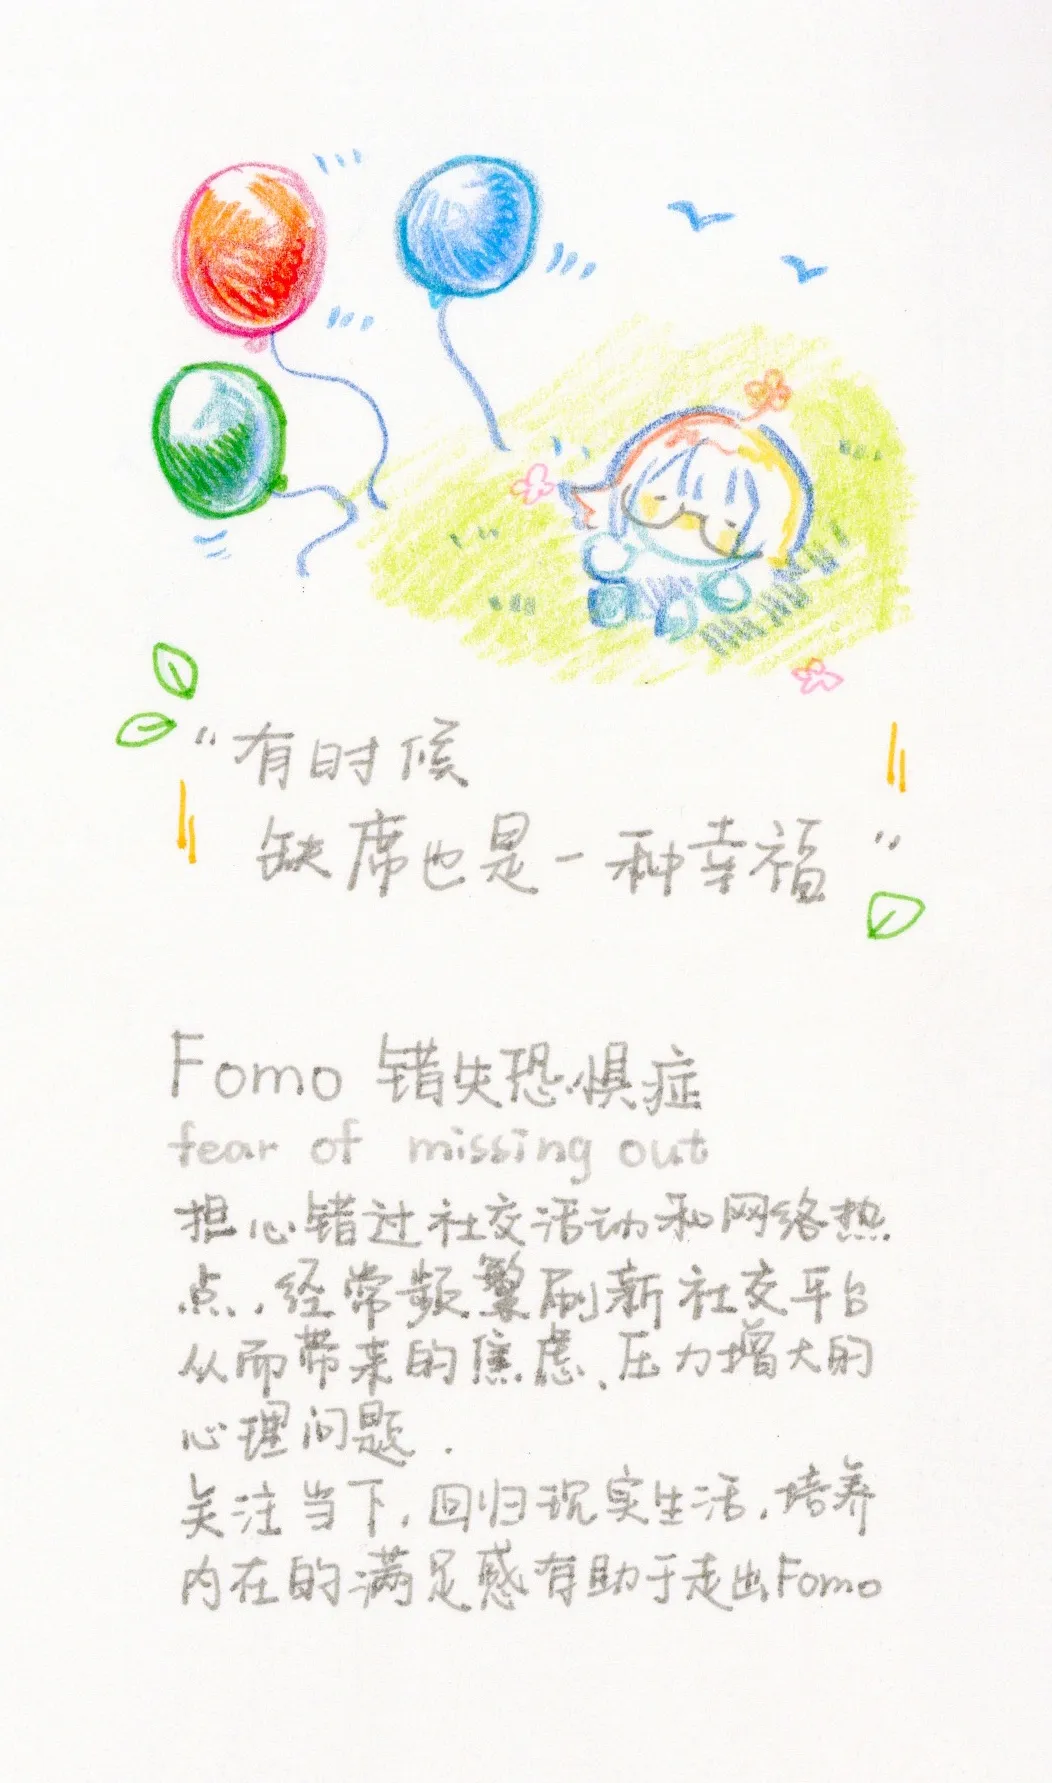 “有时候
缺席也是一种幸福”
Fomo 错失恐惧症
fear of missing out
担心错过社交活动和网络热
点,经常频繁刷新社交平台
从而带来的焦虑、压力增大的
心理问题.
关注当下,回归现实生活,培养
内在的满足感有助于走出Fomo